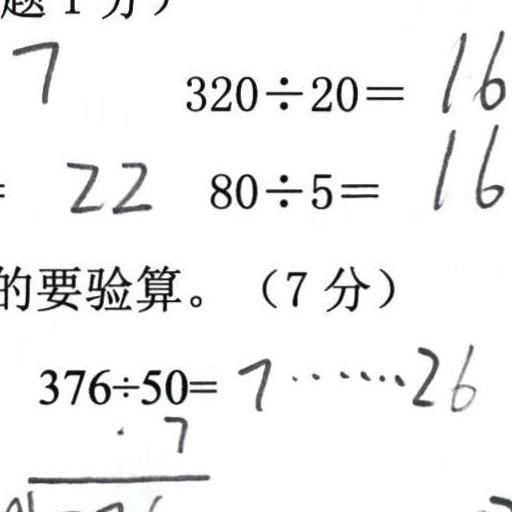 题1分）
7 320÷20= 16
= 22 80÷5= 16
的要验算。（7分）
376÷50= 7……26
7